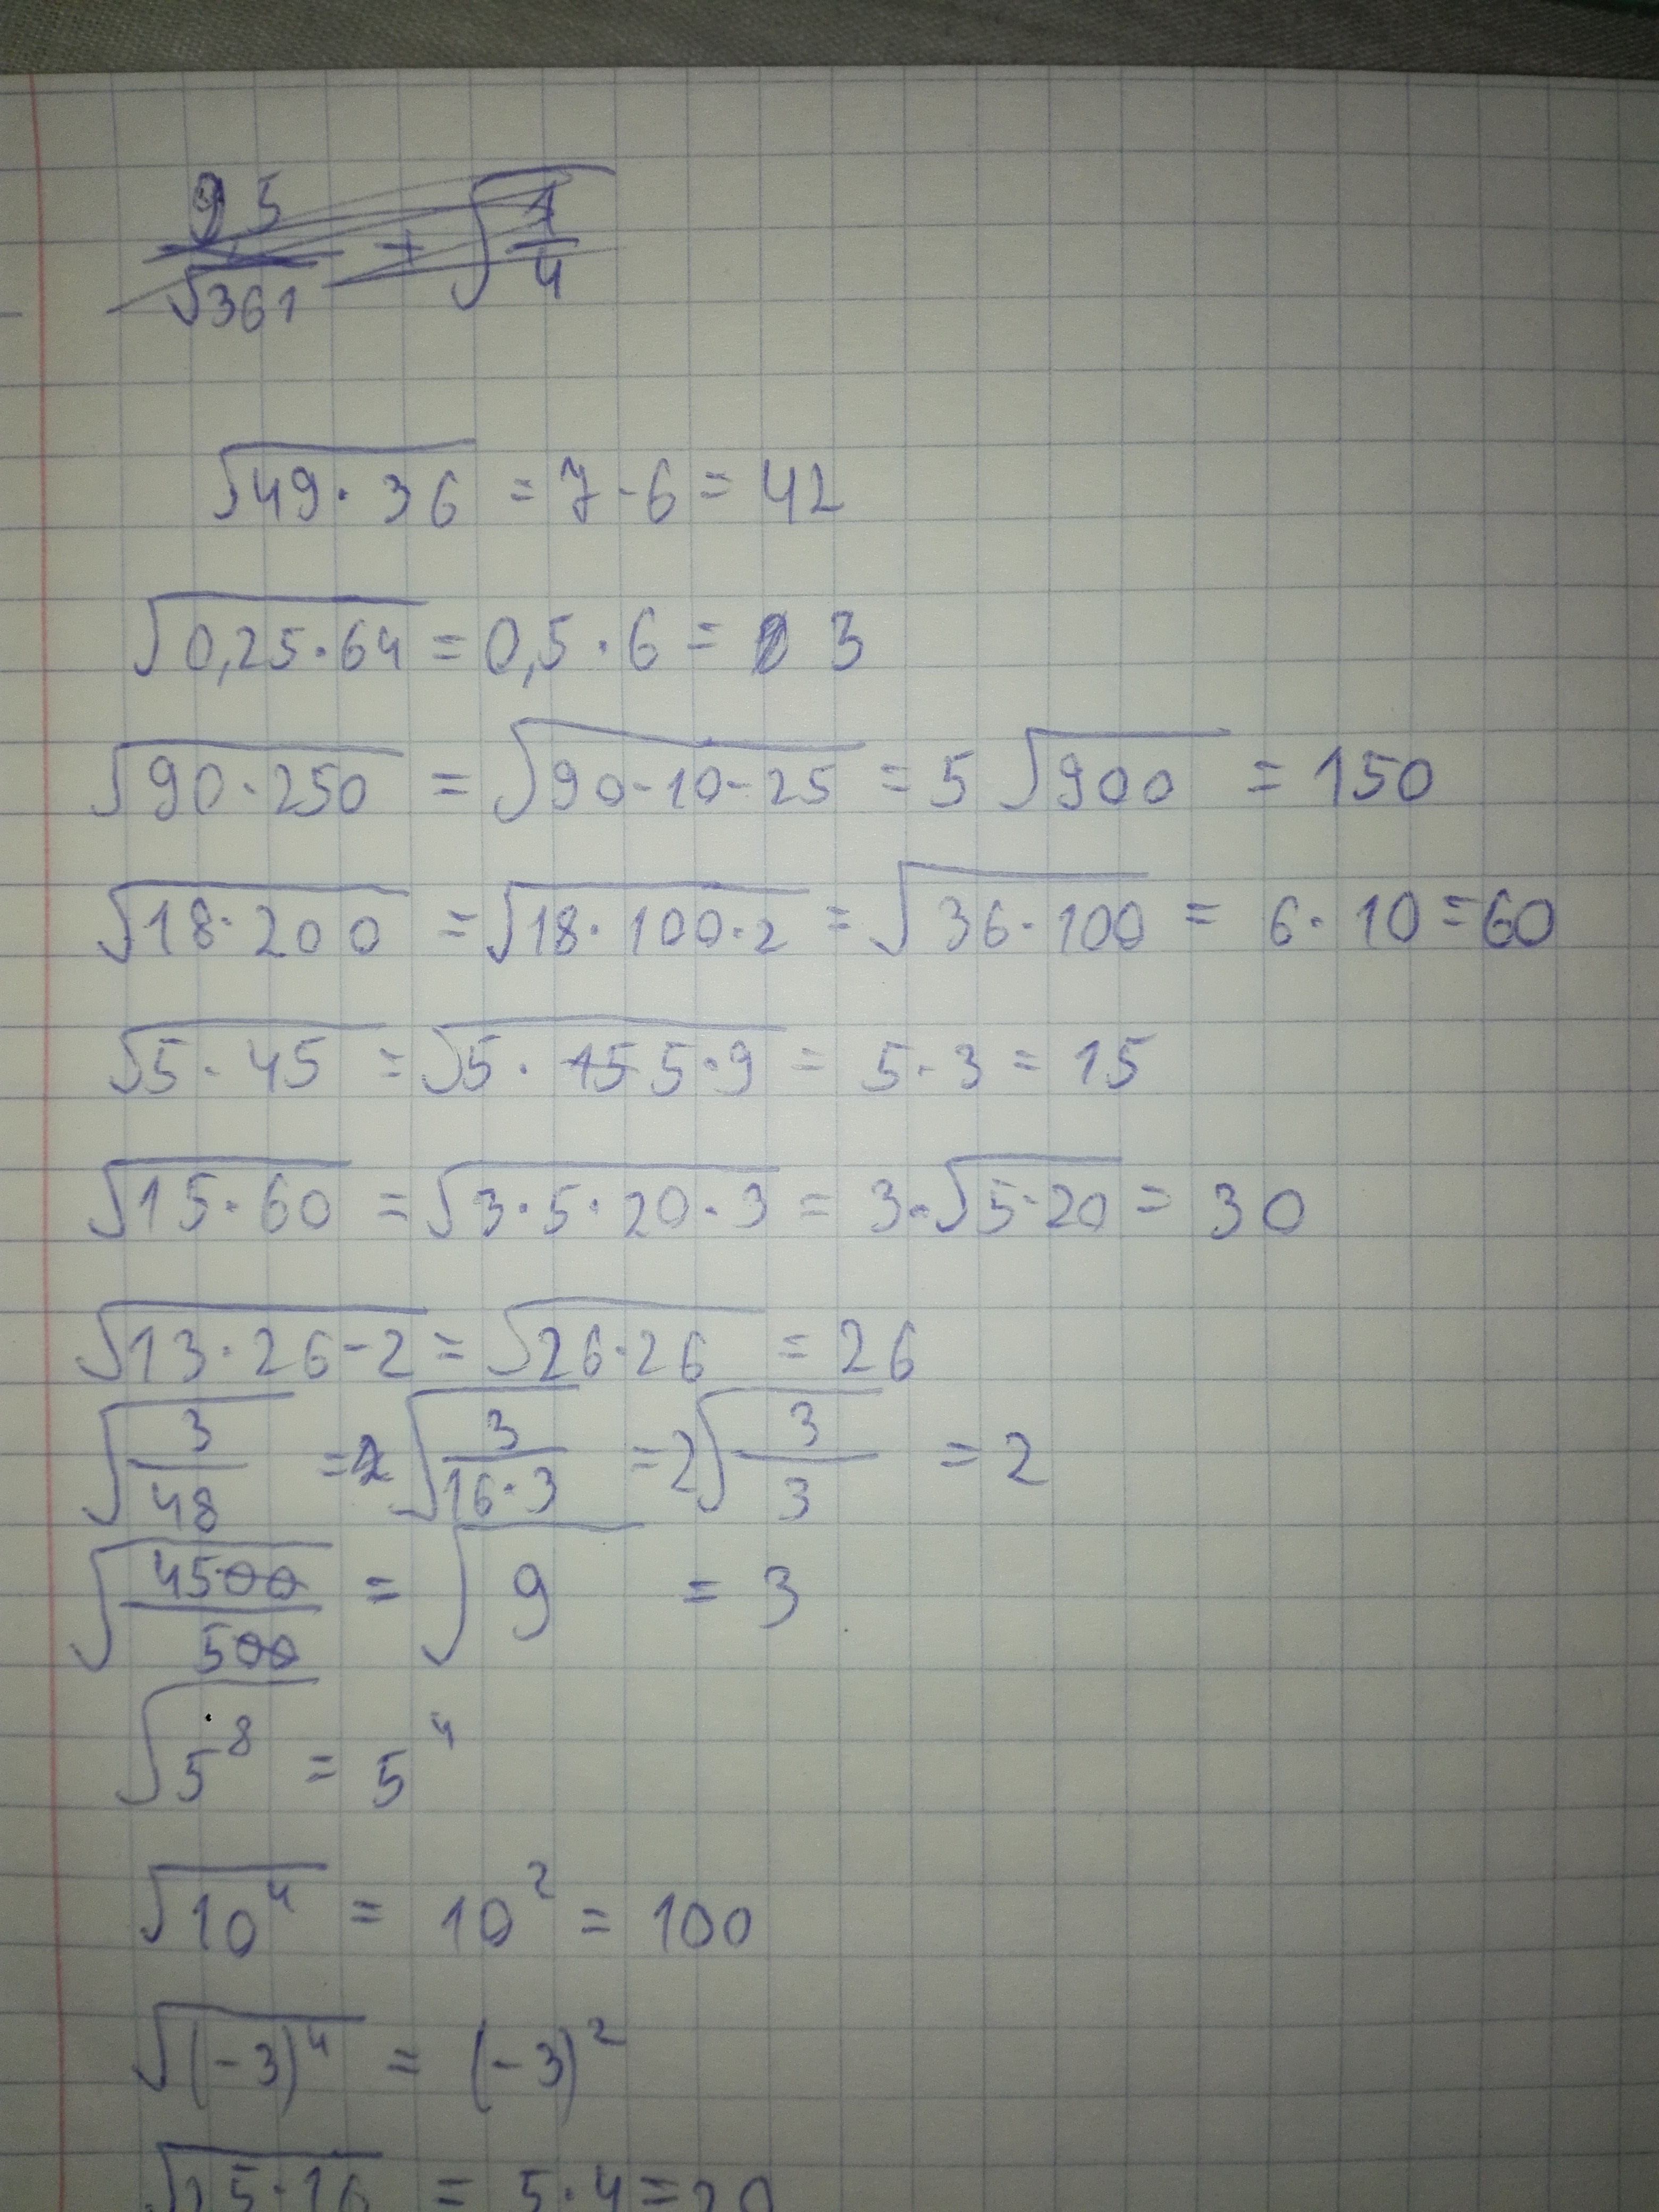 95/√361 + √(1/4)
√(49·36) = 7·6 = 42
√(0,25·64) = 0,5·6 = 3
√(90·250) = √(90·10·25) = 5√900 = 150
√(18·200) = √(18·100·2) = √(36·100) = 6·10 = 60
√(5·45) = √(5·15 5·9) = 5·3 = 15
√(15·60) = √(3·5·20·3) = 3·√(5·20) = 30
√(13·26·2) = √(26·26) = 26
√(3/48) = 2√(3/(16·3)) = 2√(3/3) = 2
√(4500/500) = √9 = 3
√(5⁸) = 5⁴
√(10⁴) = 10² = 100
√((-3)⁴) = (-3)²
√(25·16) = 5·4 = 20